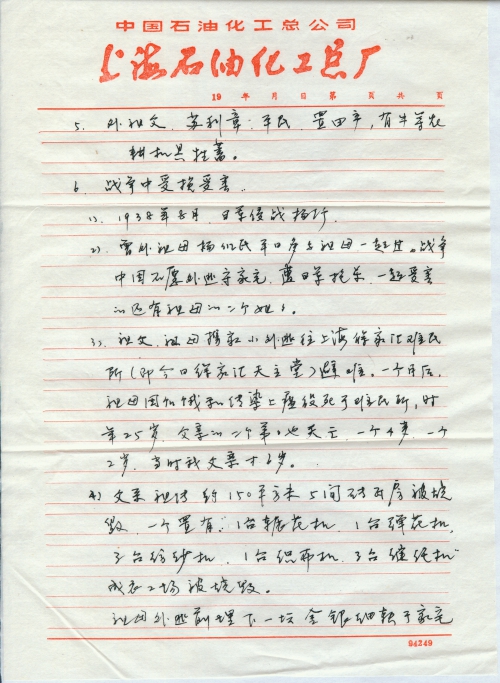 中国石油化工总公司
上海石油化工总厂
19 年 月 日 第 页 共 页
5、外祖父 苏利章：平民 置田产，有牛等农
耕机具牲畜。
6、战争中受损受害：
1)、1938年 月 日军侵战杨行
2)、曾外祖母杨 氏 平日 与祖母一起过。战争
中因不愿外逃守家宅，遭日军枪杀，一起受害
的还有祖母的二个
3)、祖父、祖母携家小外逃往上海徐家汇难民
所（即今日徐家汇天主堂）避难。一个月后，
祖母因饥饿和传染上瘟疫死于难民所，时
年25岁，父亲的二个弟弟也夭亡，一个4岁，一个
2岁，当时我父亲才6岁。
4) 父亲祖传约150平方米5间砖瓦房被烧
毁，一个置有：1台轧花机、1台弹花机、
3台纺纱机、1台织布机、3台缝纫机
成衣工场被烧毁。
祖母外逃前埋下一坛金银细软于家宅
94349